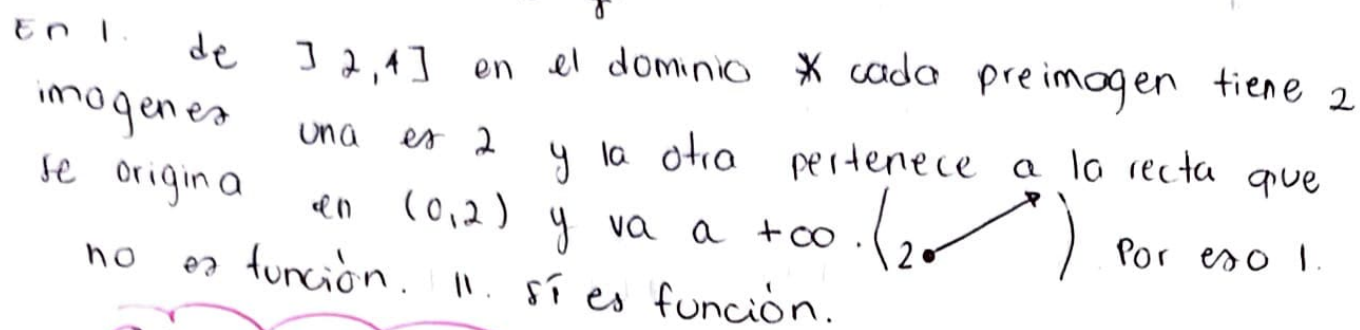 En 1. de ]2,4] en el dominio cada preimagen tiene 2
imagenes una es 2 y la otra pertenece a la recta que
se origina en (0,2) y va a +∞. (2 ) Por eso 1.
no es función. 11. sí es función.